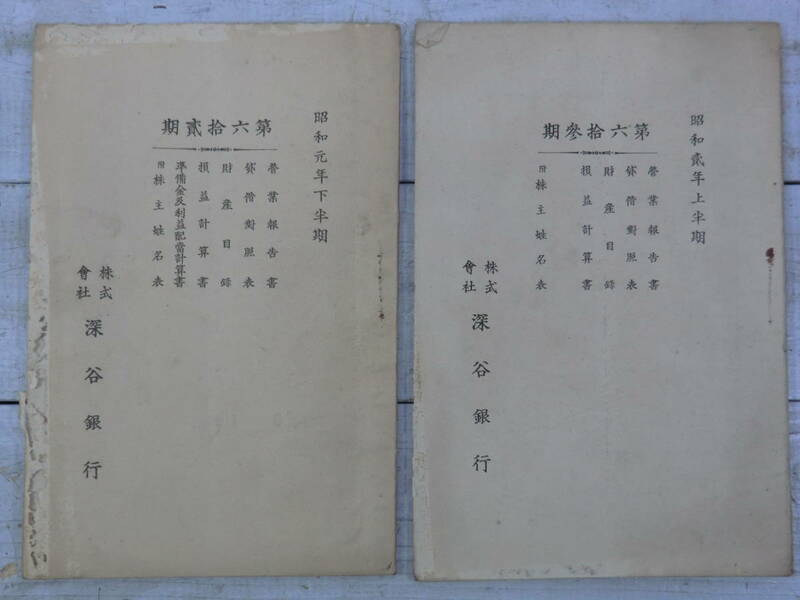 昭和元年下半期
第六拾貳期
營業報告書
貸借對照表
財產目錄
損益計算書
準備金及利益配當計算書
附株主姓名表
株式會社
深谷銀行
昭和貳年上半期
第六拾參期
營業報告書
貸借對照表
財產目錄
損益計算書
附株主姓名表
株式會社
深谷銀行